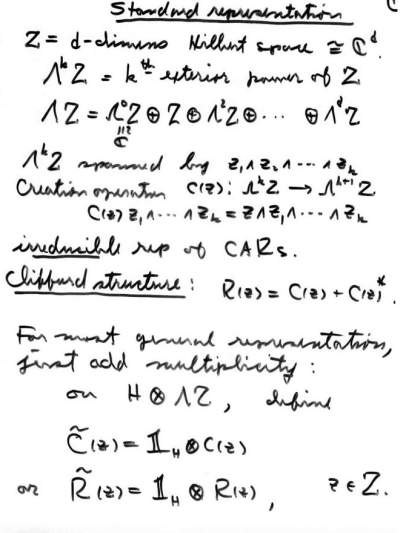 Standard representation
Z = d-dimens Hilbert space ≅ ℂᵈ.
ΛᵏZ = kᵗʰ exterior power of Z
ΛZ = Λ⁰Z ⊕ Z ⊕ Λ²Z ⊕ ··· ⊕ ΛᵈZ
ℂ
ΛᵏZ spanned by z₁∧z₂∧···∧zₖ
Creation operator C(z): ΛᵏZ → Λᵏ⁺¹Z
C(z) z₁∧···∧zₖ = z∧z₁∧···∧zₖ
irreducible rep of CARs.
Clifford structure: R(z) = C(z) + C(z)*.
For most general representation,
first add multiplicity:
on H ⊗ ΛZ, define
C̃(z) = 𝟙_H ⊗ C(z)
or R̃(z) = 𝟙_H ⊗ R(z), z ∈ Z.